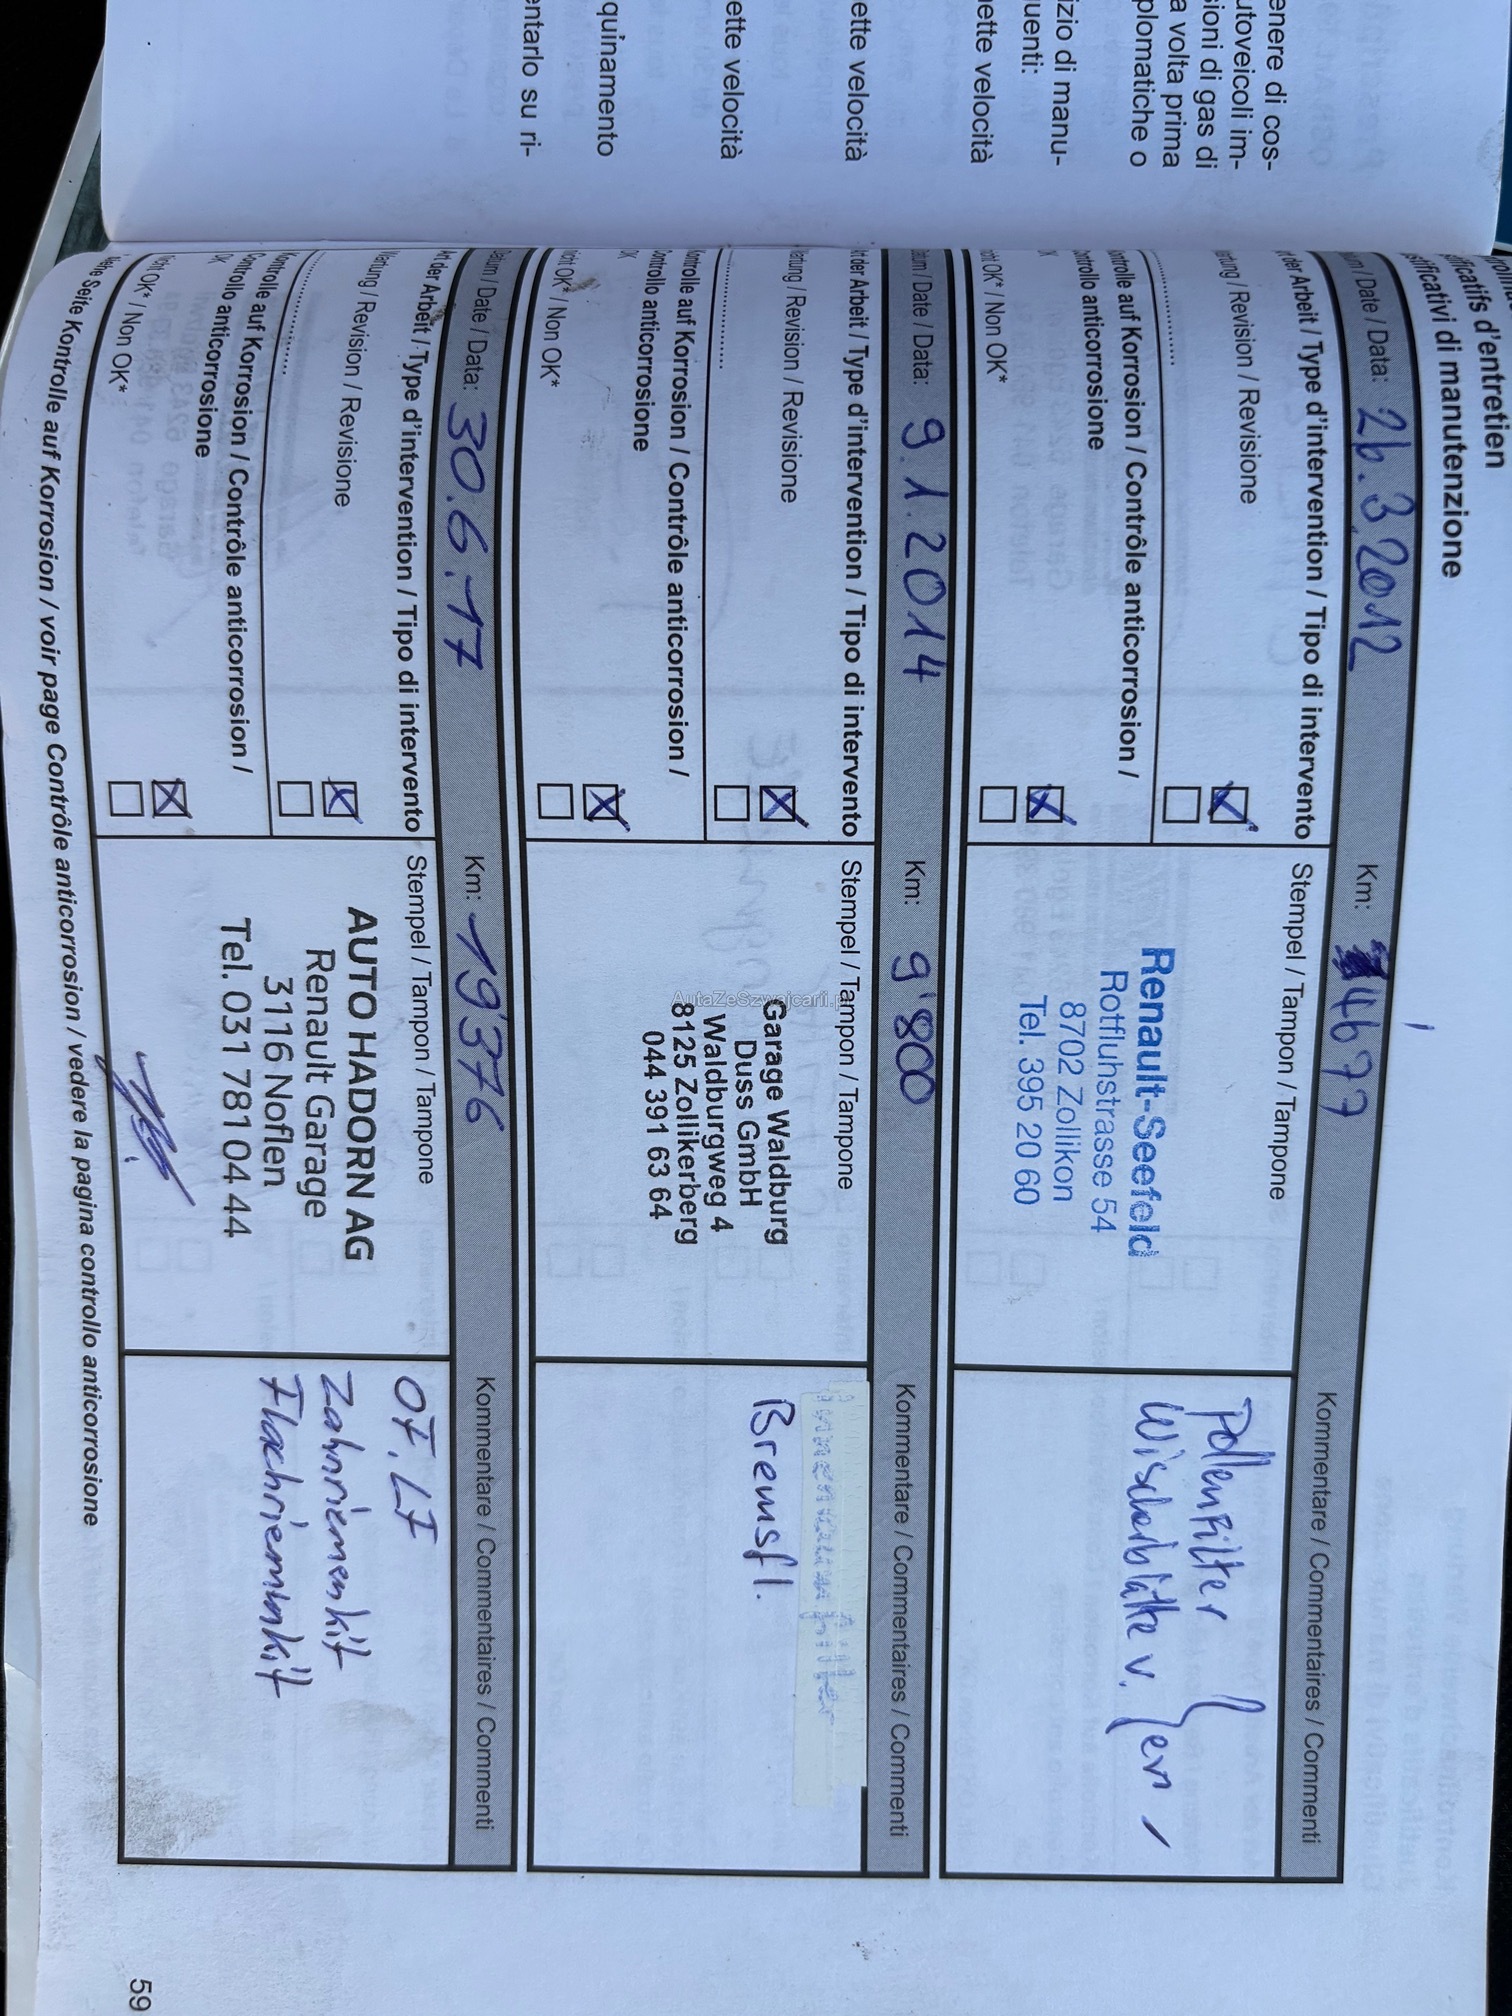 enere di cos-
utoveicoli im-
sioni di gas di
a volta prima
plomatiche o
izio di manu-
uenti:
ette velocità
ette velocità
ette velocità
quinamento
entarlo su ri-
d'entretien
di manutenzione
/ Date / Data: 26.3.2012 Km: 4677 Kommentare / Commentaires / Commenti
der Arbeit / Type d'intervention / Tipo di intervento Stempel / Tampon / Tampone
/ Revision / Revisione
Kontrolle auf Korrosion / Contrôle anticorrosion /
Controllo anticorrosione
OK* / Non OK*
Renault-Seefeld
Rotfluhstrasse 54
8702 Zollikon
Tel. 395 20 60
Pollenfilter
Wischerblätter v.
/ Date / Data: 9.1.2014 Km: 9'800 Kommentare / Commentaires / Commenti
der Arbeit / Type d'intervention / Tipo di intervento Stempel / Tampon / Tampone
/ Revision / Revisione
Kontrolle auf Korrosion / Contrôle anticorrosion /
Controllo anticorrosione
OK
OK* / Non OK*
Garage Waldburg
Duss GmbH
Waldburgweg 4
8125 Zollikerberg
044 391 63 64
Bremsfl.
AutaZeSzwajcarii.pl
Datum / Date / Data: 30.6.17 Km: 19'376 Kommentare / Commentaires / Commenti
Art der Arbeit / Type d'intervention / Tipo di intervento Stempel / Tampon / Tampone
Wartung / Revision / Revisione
Kontrolle auf Korrosion / Contrôle anticorrosion /
Controllo anticorrosione
OK
Nicht OK* / Non OK*
AUTO HADORN AG
Renault Garage
3116 Noflen
Tel. 031 781 04 44
OF, LF
Zahnriemenkit
Flachriemenkit
Seite Kontrolle auf Korrosion / voir page Contrôle anticorrosion / vedere la pagina controllo anticorrosione
59